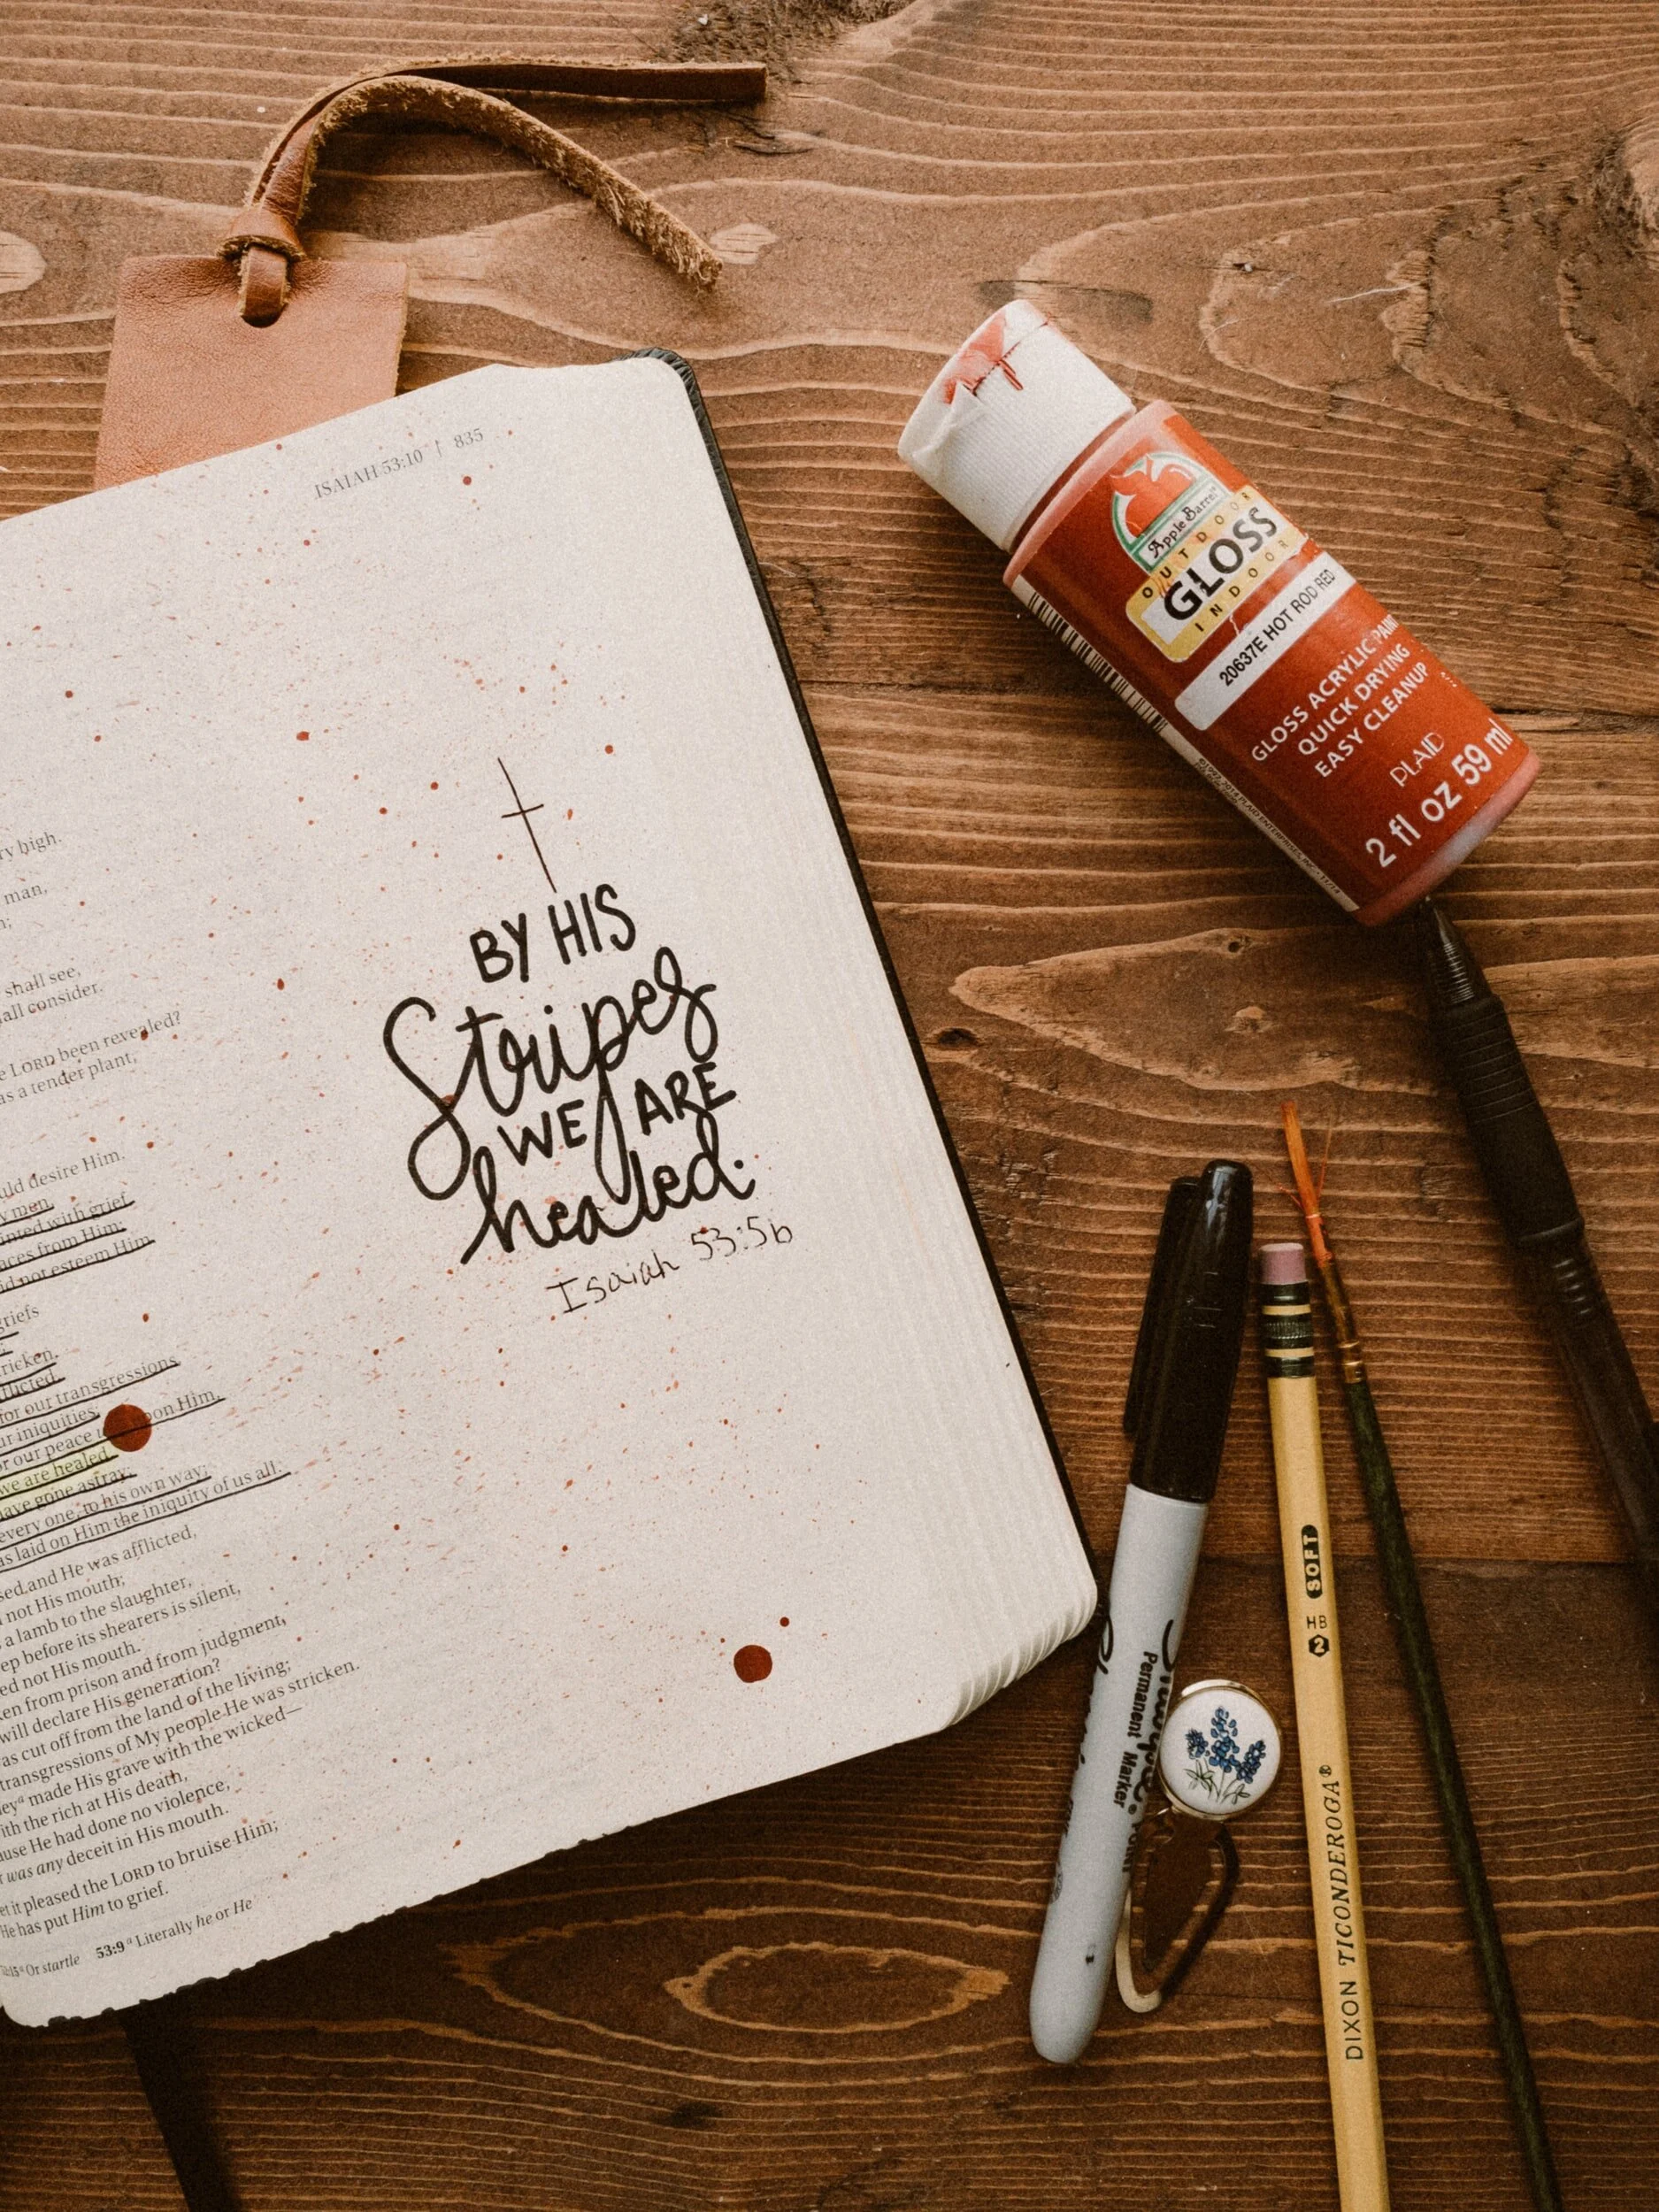 ISAIAH 53:10 | 835
ry high.
man,
shall see,
all consider.
e LORD been revealed?
as a tender plant,
uld desire Him.
y men,
inted with grief.
aces from Him;
id not esteem Him.
griefs
ricken,
flicted.
for our transgressions,
ur iniquities;
or our peace upon Him,
we are healed.
have gone astray;
every one, to his own way;
as laid on Him the iniquity of us all.
sed and He was afflicted,
not His mouth;
a lamb to the slaughter,
ep before its shearers is silent,
ed not His mouth.
en from prison and from judgment,
will declare His generation?
as cut off from the land of the living;
transgressions of My people He was stricken.
ey a made His grave with the wicked—
ith the rich at His death,
ause He had done no violence,
was any deceit in His mouth.
et it pleased the LORD to bruise Him;
He has put Him to grief.
Or startle 53:9 a Literally he or He
BY HIS
Stripes
WE ARE
healed.
Isaiah 53:5b
Apple Barrel
OUTDOOR
GLOSS
INDOOR
20637E HOT ROD RED
GLOSS ACRYLIC PAINT
QUICK DRYING
EASY CLEANUP
PLAID
2 fl oz 59 ml
Sharpie
Permanent Marker
DIXON TICONDEROGA® HB 2 SOFT